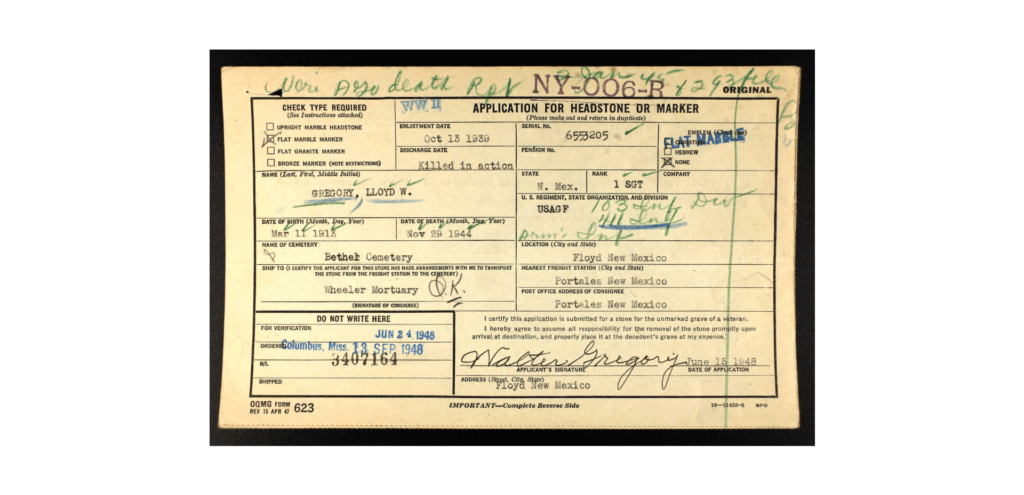 Veri Ago death Rpt NY-006-R 2 Jan 45 293 file
ORIGINAL
CHECK TYPE REQUIRED
(See Instructions attached)
WW II
APPLICATION FOR HEADSTONE OR MARKER
(Please make out and return in duplicate)
UPRIGHT MARBLE HEADSTONE
FLAT MARBLE MARKER
FLAT GRANITE MARKER
BRONZE MARKER (NOTE RESTRICTIONS)
ENLISTMENT DATE
Oct 13 1939
DISCHARGE DATE
Killed in action
SERIAL No.
6553205
PENSION No.
EMBLEM (Check one)
FLAT MARBLE
CHRISTIAN
HEBREW
NONE
NAME (Last, First, Middle Initial)
GREGORY, LLOYD W.
STATE
N. Mex.
RANK
1 SGT
COMPANY
U. S. REGIMENT, STATE ORGANIZATION, AND DIVISION
USAGF
103 Inf Div
411 Inf
Inf
DATE OF BIRTH (Month, Day, Year)
Mar 11 1913
DATE OF DEATH (Month, Day, Year)
Nov 29 1944
NAME OF CEMETERY
Bethel Cemetery
LOCATION (City and State)
Floyd New Mexico
SHIP TO (I CERTIFY THE APPLICANT FOR THIS STONE HAS MADE ARRANGEMENTS WITH ME TO TRANSPORT
THE STONE FROM THE FREIGHT STATION TO THE CEMETERY)
Wheeler Mortuary O.K.
(SIGNATURE OF CONSIGNEE)
NEAREST FREIGHT STATION (City and State)
Portales New Mexico
POST OFFICE ADDRESS OF CONSIGNEE
Portales New Mexico
DO NOT WRITE HERE
FOR VERIFICATION
JUN 24 1948
ORDERED
Columbus, Miss. 13 SEP 1948
3407164
B/L
SHIPPED
I certify this application is submitted for a stone for the unmarked grave of a veteran.
I hereby agree to assume all responsibility for the removal of the stone promptly upon
arrival at destination, and properly place it at the decedent's grave at my expense.
Walter Gregory June 15 1948
APPLICANT'S SIGNATURE DATE OF APPLICATION
ADDRESS (Street, City, State)
Floyd New Mexico
OQMG FORM
REV 15 APR 47 623
IMPORTANT—Complete Reverse Side
16—11453-6 GPO